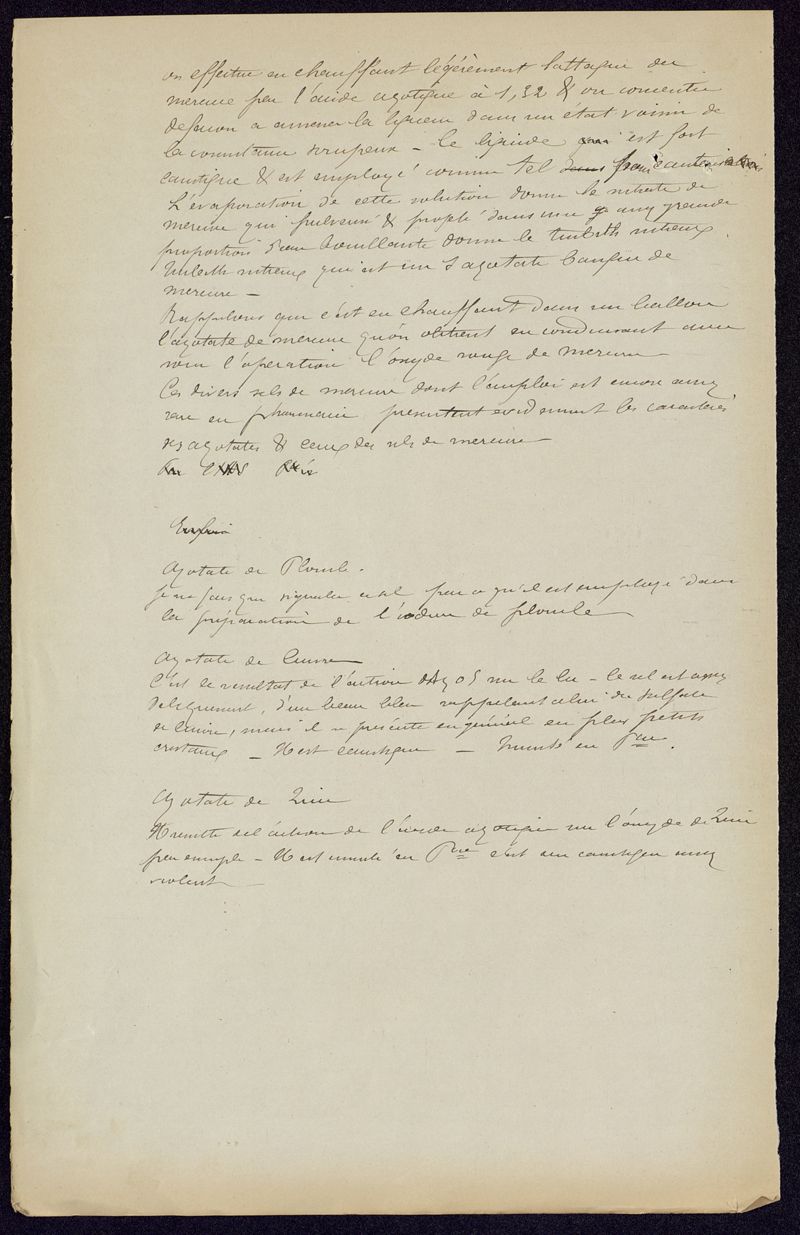 on effectue en chauffant légèrement l'attaque du
mercure par l'acide azotique à 1,32 & on concentre
de façon a amener la liqueur dans un état voisin de
la consistance sirupeuse – le liquide est fort
caustique & est employé comme tel pour
L'évaporation de cette solution donne le nitrate de
mercure qui pulverisé & projeté dans une assez grande
proportion d'eau bouillante donne le turbith nitreux
turbith nitreux qui est un s azotate basique de
mercure –
Rappelons que c'est en chauffant dans un ballon
l'azotate de mercure qu'on obtient en conduisant avec
soin l'opération l'oxyde rouge de mercure
Ces divers sels de mercure dont l'emploi est encore assez
rare en pharmacie présentent evidemment les caractères
des azotates & ceux des sels de mercure
Emploi
Azotate de Plomb.
Je ne fais que signaler ce sel parce qu'il est employé dans
la préparation de l'iodure de plomb
Azotate de Cuivre
C'est le résultat de l'action d'AzO5 sur le Cu – le sel est assez
deliquescent, d'un beau bleu rappelant celui du sulfate
de cuivre, mais il se présente en général en plus petits
cristaux – Il est caustique – Inusité en Pcie.
Azotate de Zinc
Il resulte de l'action de l'acide azotique sur l'oxyde de Zinc
par exemple – Il est inusité en Pcie c'est un caustique assez
violent